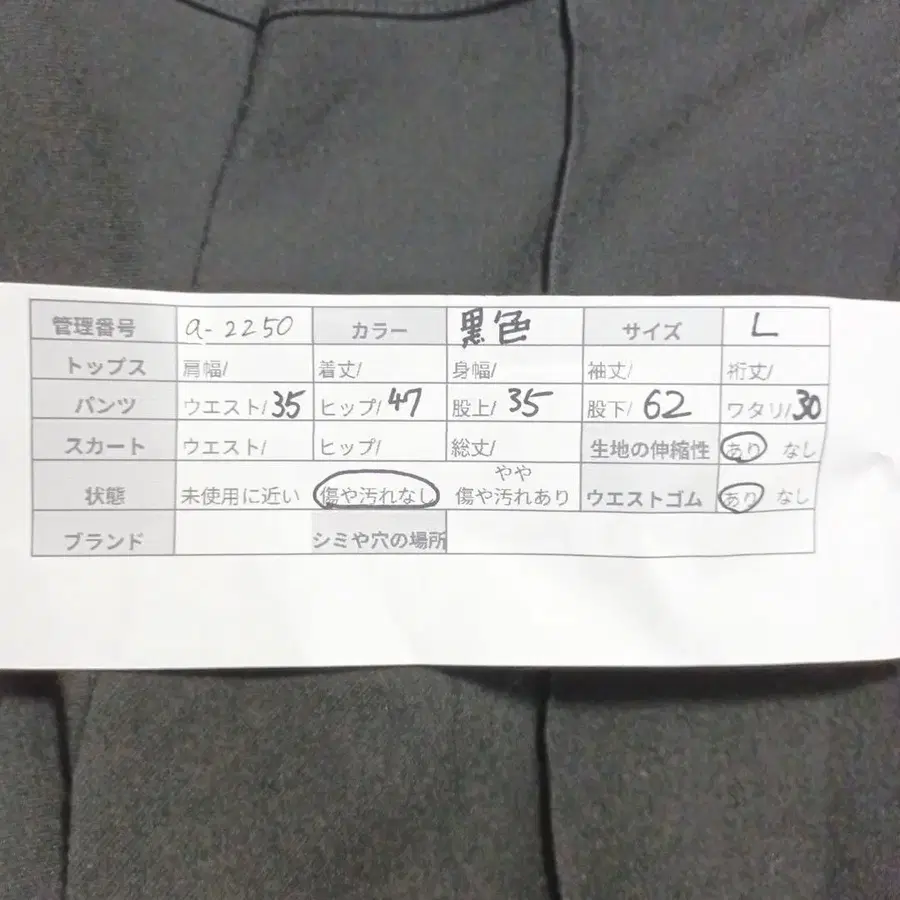 管理番号 a-2250 カラー 黒色 サイズ L
トップス 肩幅/ 着丈/ 身幅/ 袖丈/ 裄丈/
パンツ ウエスト/35 ヒップ/47 股上/35 股下/62 ワタリ/30
スカート ウエスト/ ヒップ/ 総丈/ 生地の伸縮性 あり なし
状態 未使用に近い 傷や汚れなし やや傷や汚れあり ウエストゴム あり なし
ブランド シミや穴の場所